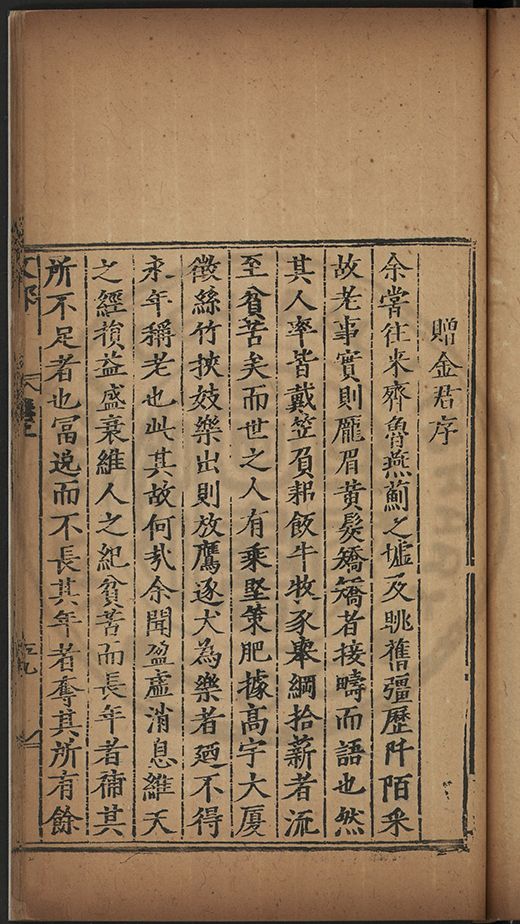 贈金君序
余嘗往來齊魯燕薊之墟及眺舊彊歷阡陌采
故老事實則龐眉黃髮矯矯者接疇而語也然
其人率皆戴笠負耜飯牛牧豕舉網拾薪者流
至貧苦矣而世之人有乘堅策肥據高宇大厦
徵絲竹挾妓樂出則放鷹逐犬為樂者廼不得
永年稱老也此其故何哉余聞盈虗消息維天
之經損益盛衰維人之紀貧苦而長年者彌其
所不足者也冨逸而不長其年者奪其所有餘